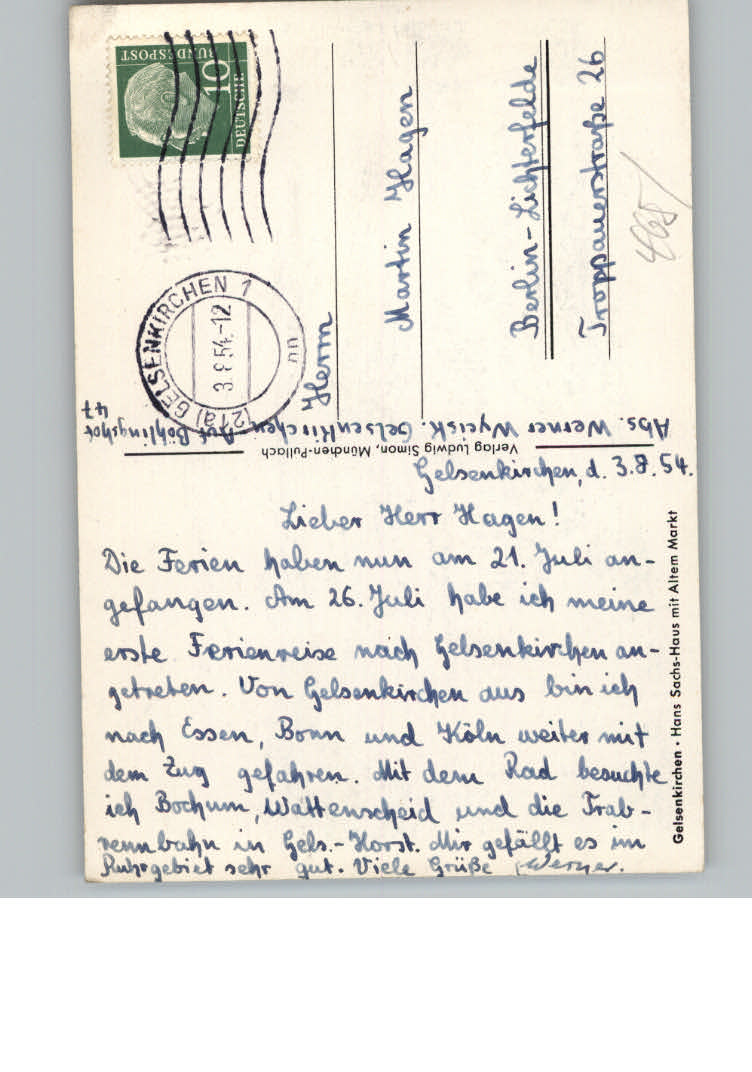 Gelsenkirchen, d. 3.8.54.
Lieber Herr Hagen!
Die Ferien haben nun am 21. Juli an-
gefangen. Am 26. Juli habe ich meine
erste Ferienreise nach Gelsenkirchen an-
getreten. Von Gelsenkirchen aus bin ich
nach Essen, Bonn und Köln weiter mit
dem Zug gefahren. Mit dem Rad besuchte
ich Bochum, Wattenscheid und die Trab-
rennbahn in Gels.-Horst. Mir gefällt es im
Ruhrgebiet sehr gut. Viele Grüße Werner.
Abs. Werner Wycisk. Gelsenkirchen Auf Böhlingshof
47
Verlag Ludwig Simon, München-Pullach
Gelsenkirchen • Hans Sachs-Haus mit Altem Markt
DEUTSCHE
BUNDESPOST
10
(21a) GELSENKIRCHEN 1
3.8.54.-12
uu
Herrn
Martin Hagen
Berlin-Lichterfelde
Troppauerstraße 26